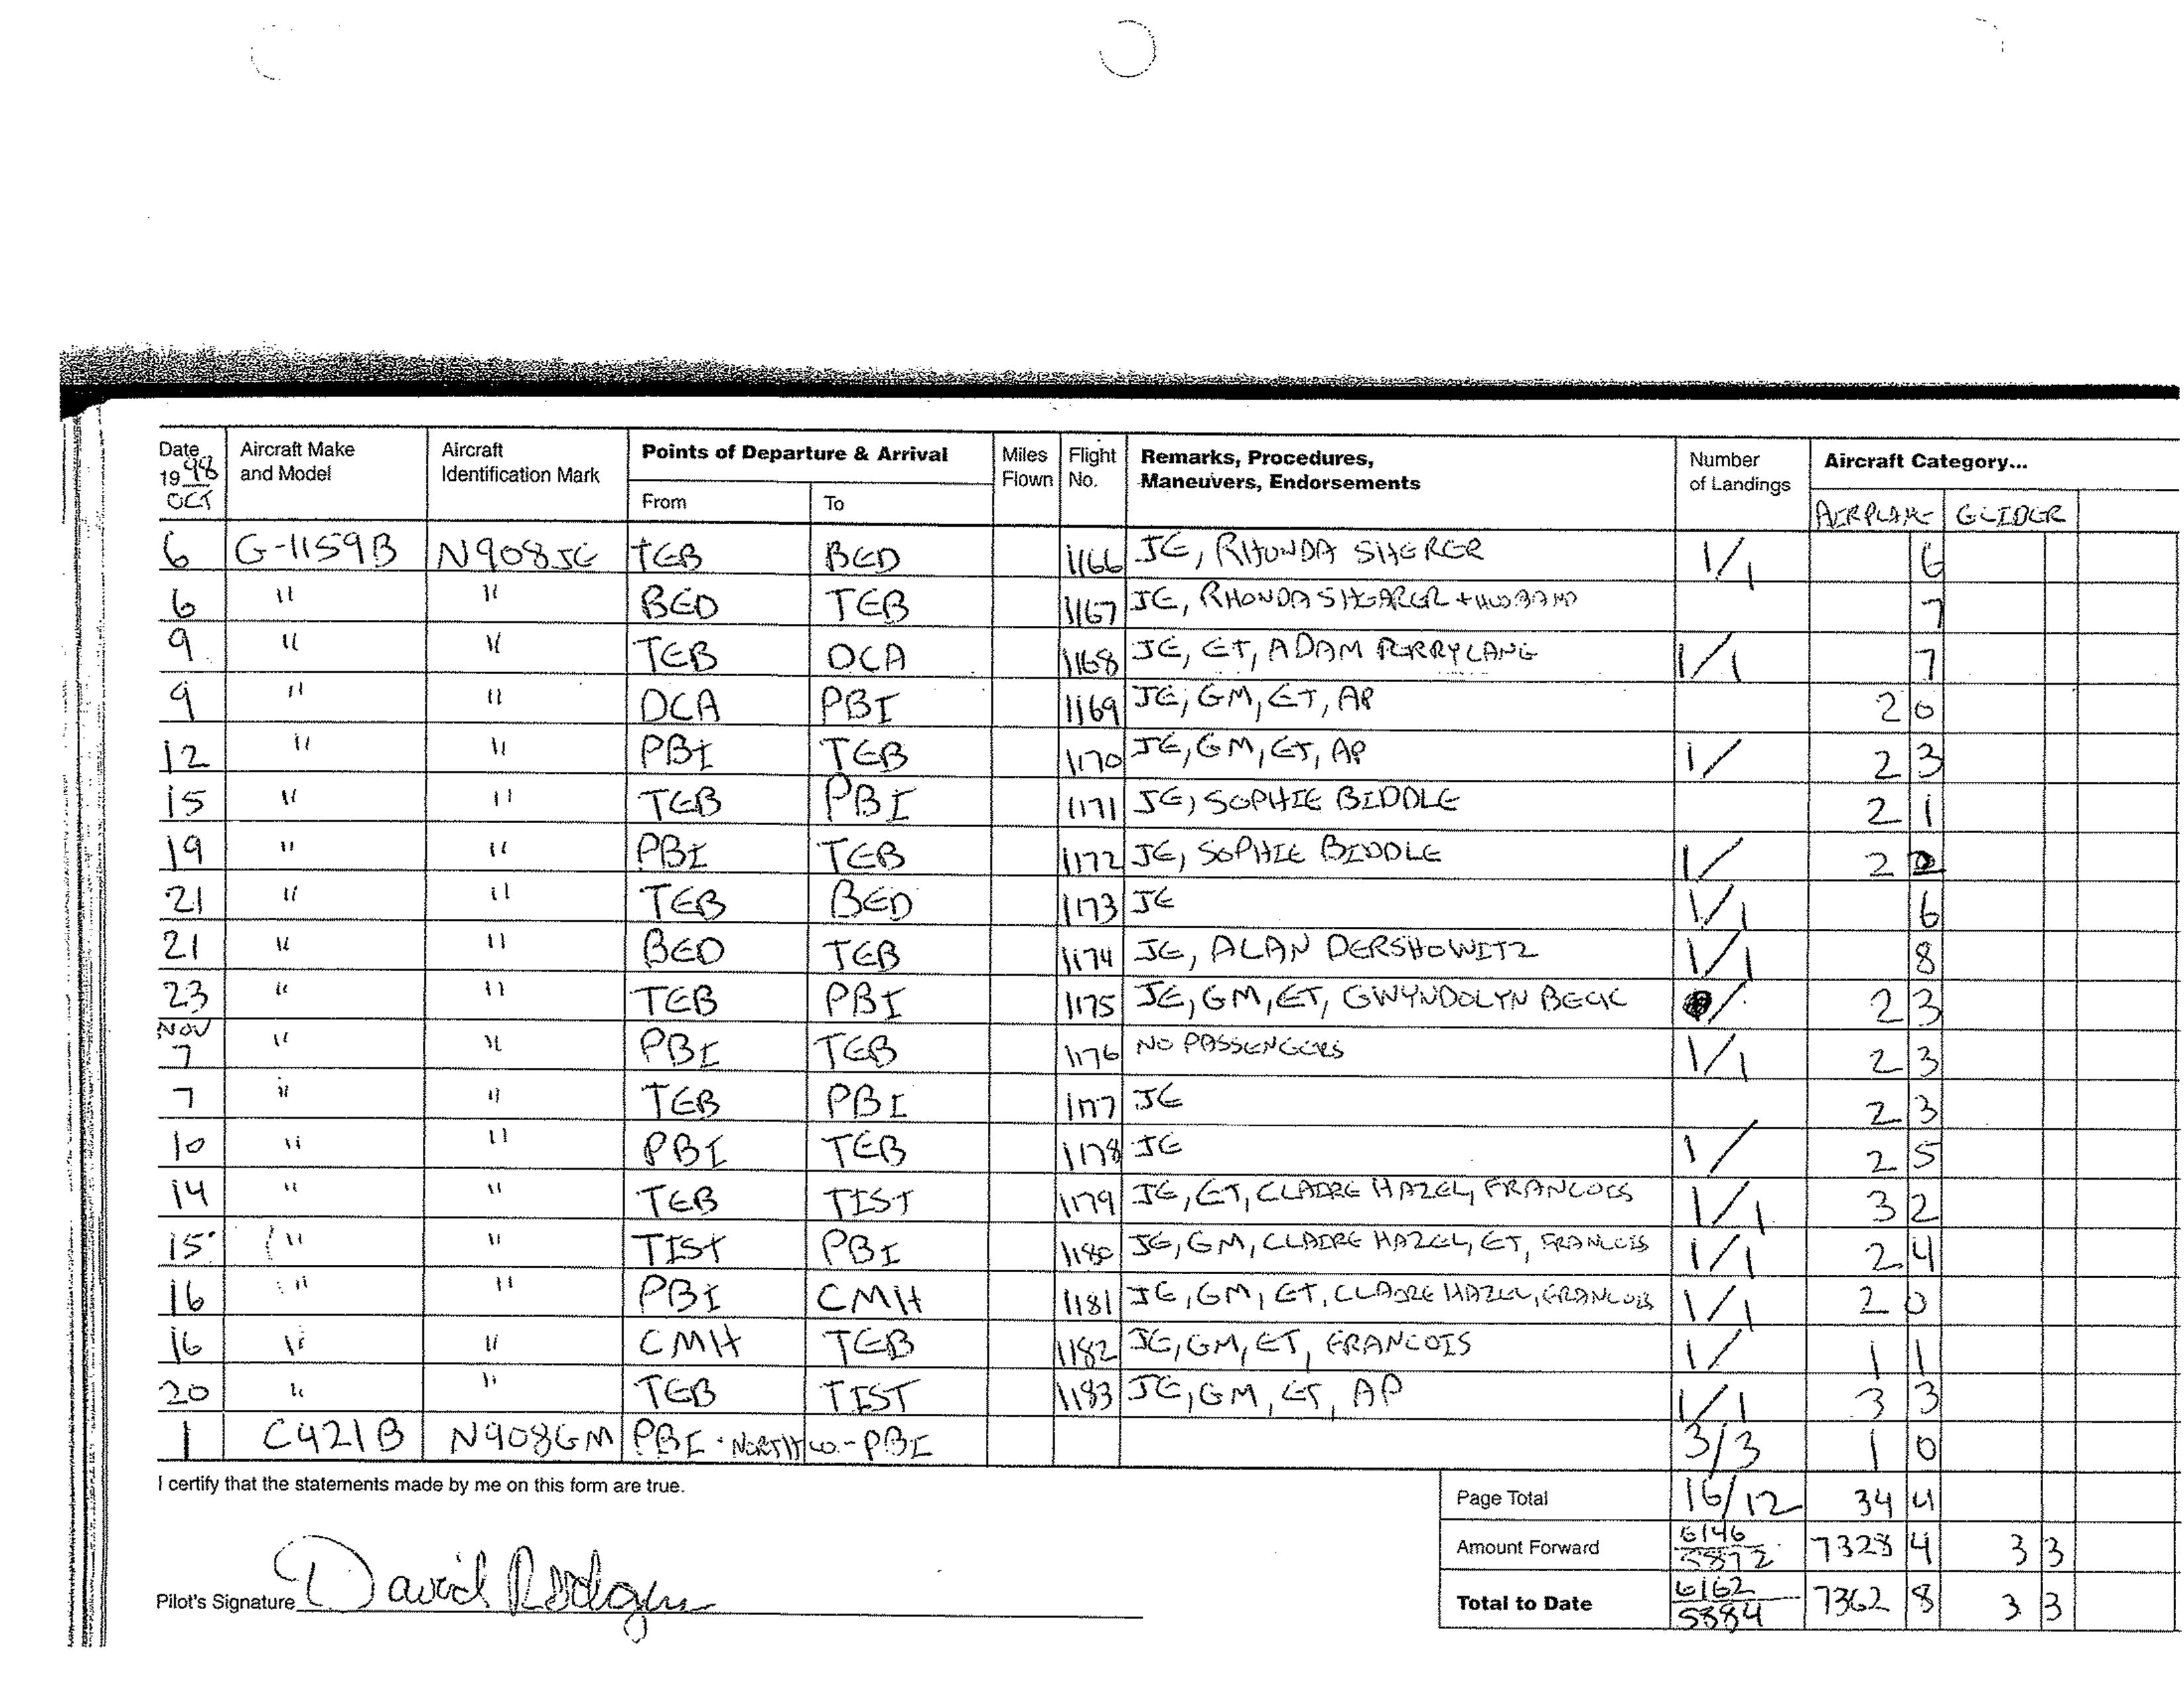 Date 1998 OCT Aircraft Make and Model Aircraft Identification Mark Points of Departure & Arrival From To Miles Flown Flight No. Remarks, Procedures, Maneuvers, Endorsements Number of Landings Aircraft Category... AIRPLANE GLIDER
6 G-1159B N908JE TEB BED 1166 JE, RHONDA SHERER 1/1 6
6 " " BED TEB 1167 JE, RHONDA SHEARER + HUSBAND 7
9 " " TEB DCA 1168 JE, ET, ADAM PERRY LANG 1/1 7
9 " " DCA PBI 1169 JE, GM, ET, AP 2 0
12 " " PBI TEB 1170 JE, GM, ET, AP 1/ 2 3
15 " " TEB PBI 1171 JE, SOPHIE BIDDLE 2 1
19 " " PBI TEB 1172 JE, SOPHIE BIDDLE 1/ 2 2
21 " " TEB BED 1173 JE 1/1 6
21 " " BED TEB 1174 JE, ALAN DERSHOWITZ 1/1 8
23 " " TEB PBI 1175 JE, GM, ET, GWYNDOLYN BECK / 2 3
NOV
7 " " PBI TEB 1176 NO PASSENGERS 1/1 2 3
7 " " TEB PBI 1177 JE 2 3
10 " " PBI TEB 1178 JE 1/ 2 5
14 " " TEB TIST 1179 JE, ET, CLAIRE HAZEL, FRANCOIS 1/1 3 2
15 " " TIST PBI 1180 JE, GM, CLAIRE HAZEL, ET, FRANCOIS 1/1 2 4
16 " " PBI CMH 1181 JE, GM, ET, CLAIRE HAZEL, FRANCOIS 1/1 2 0
16 " " CMH TEB 1182 JE, GM, ET, FRANCOIS 1/ 1 1
20 " " TEB TIST 1183 JE, GM, ET, AP 1/1 3 3
1 C421B N908GM PBI - NORTH CO. - PBI 3/3 1 0
I certify that the statements made by me on this form are true.
Page Total 16/12 34 4
Amount Forward 6146 5872 7328 4 3 3
Total to Date 6162 5884 7362 8 3 3
Pilot's Signature David Rodgers